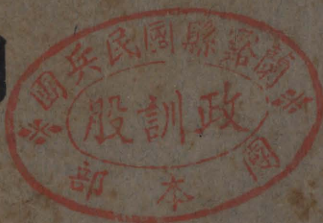 蘭谿縣國民兵團
政訓股
團本部